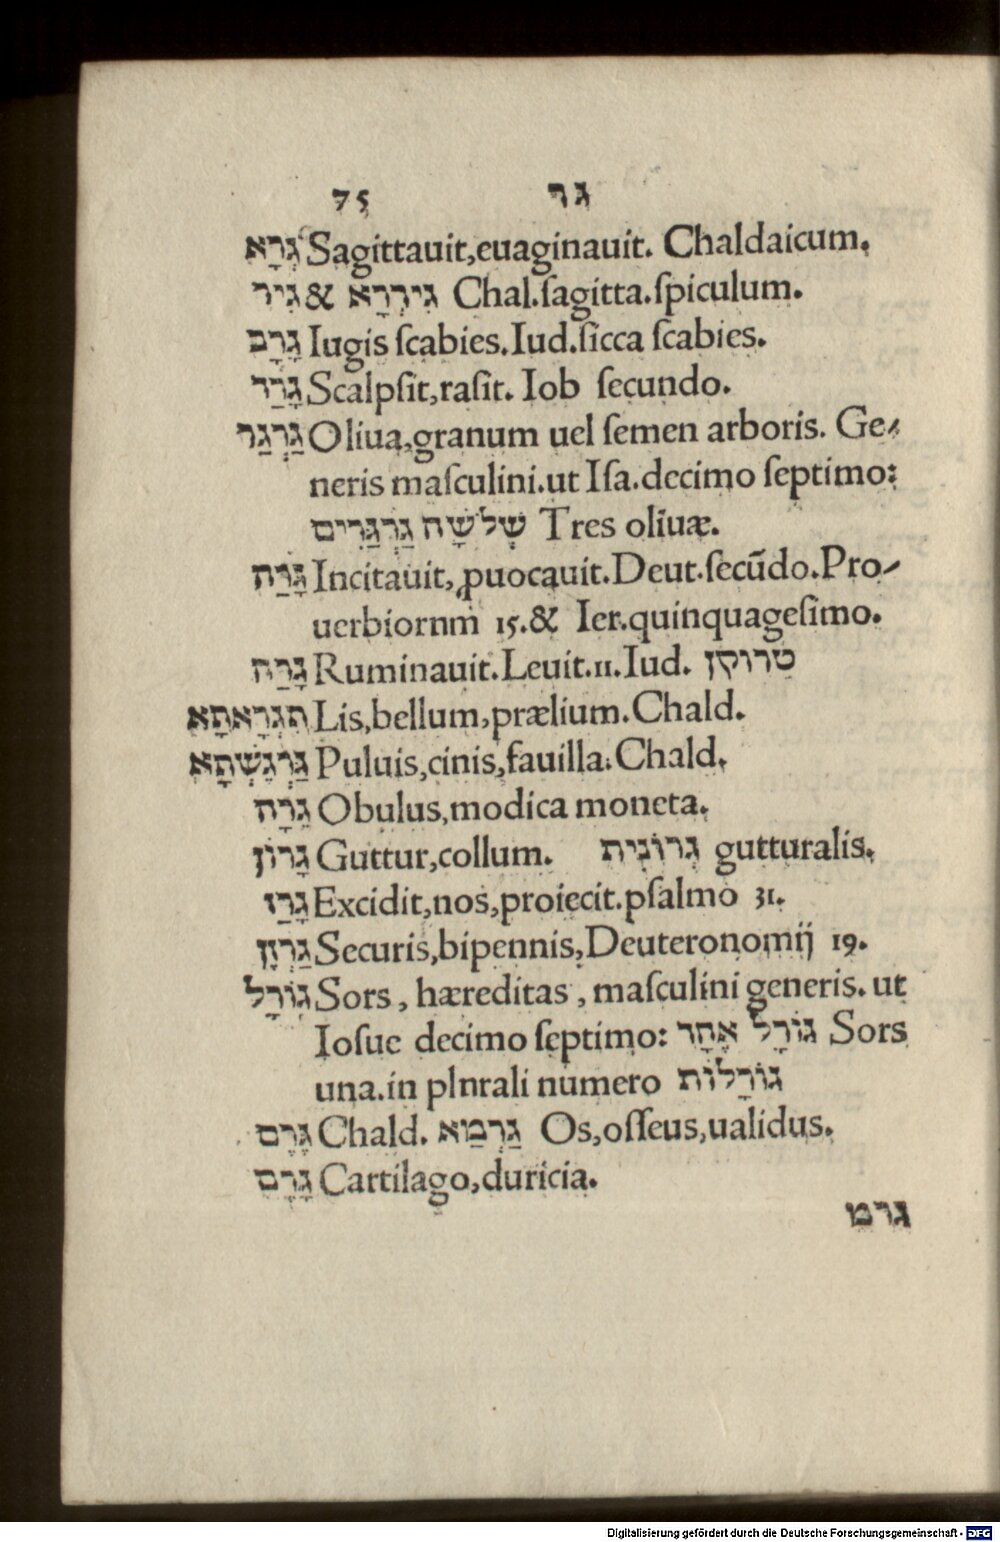 75 גר
גְרָא Sagittauit,euaginauit. Chaldaicum.
גִיר & גִירְרָא Chal.ſagitta.ſpiculum.
גָרָב Iugis ſcabies.Iud.ſicca ſcabies.
גָרַר Scalpſit,raſit. Iob ſecundo.
גַרְגַר Oliua,granum uel ſemen arboris. Ge⸗
neris maſculini.ut Iſa.decimo ſeptimo:
שְׁלֹשָׁה גַרְגְרִים Tres oliuæ.
גָרַה Incitauit,ꝓuocauit.Deut.ſecũdo.Pro⸗
uerbiornm 15.& Ier.quinquageſimo.
גָרַה Ruminauit.Leuit.11.Iud. טרוקן
תִגְרָאתָא Lis,bellum,prælium.Chald.
גַרְגֶשְׁתָא Puluis,cinis,fauilla.Chald.
גֵרָה Obulus,modica moneta.
גָרוֹן Guttur,collum. גְרוֹנִית gutturalis.
גָרַז Excidit,nos,proiecit.pſalmo 31.
גַרְזֶן Securis,bipennis,Deuteronomij 19.
גוֹרָל Sors, hæreditas, maſculini generis. ut
Ioſue decimo ſeptimo: גוֹרָל אֶחָד Sors
una.in plnrali numero גוֹרָלוֹת
גֶרֶם Chald. גַרְמַא Os,oſſeus,ualidus.
גָרָם Cartilago,duricia.
גרמ